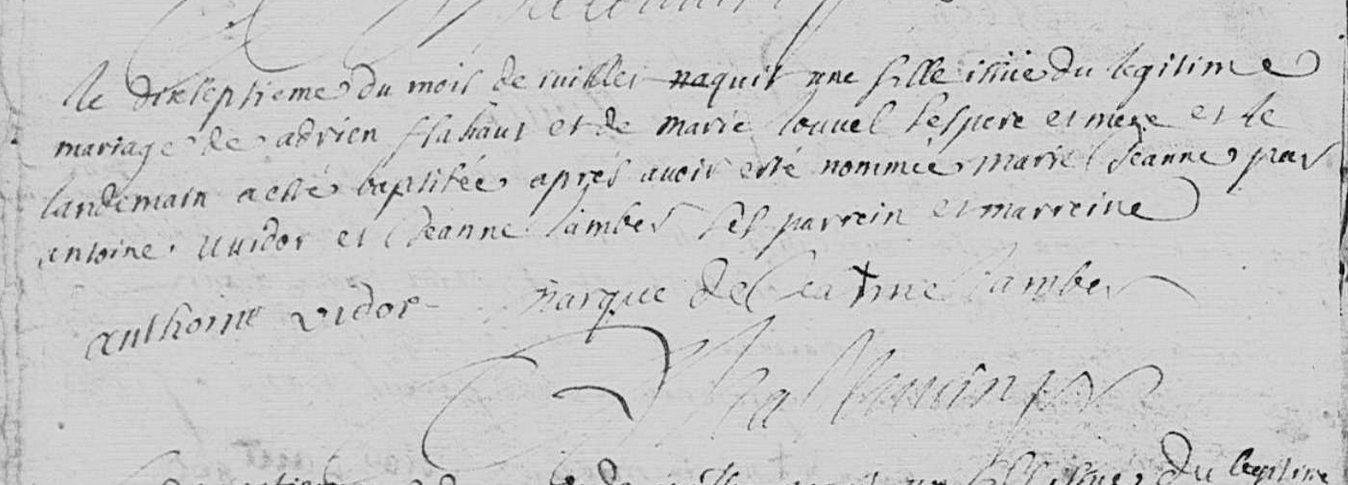 le dixseptieme du mois de iuillet naquit une fille issüe du legitime
mariage de adrien flahaut et de marie louuel ses pere et mere et le
landemain a esté baptisée apres auoir esté nommée marie Jeanne par
antoine uuidor et Jeanne lambert ses parrein et marreine
anthoine vidor marque de Jea†nne lambert
du legitime